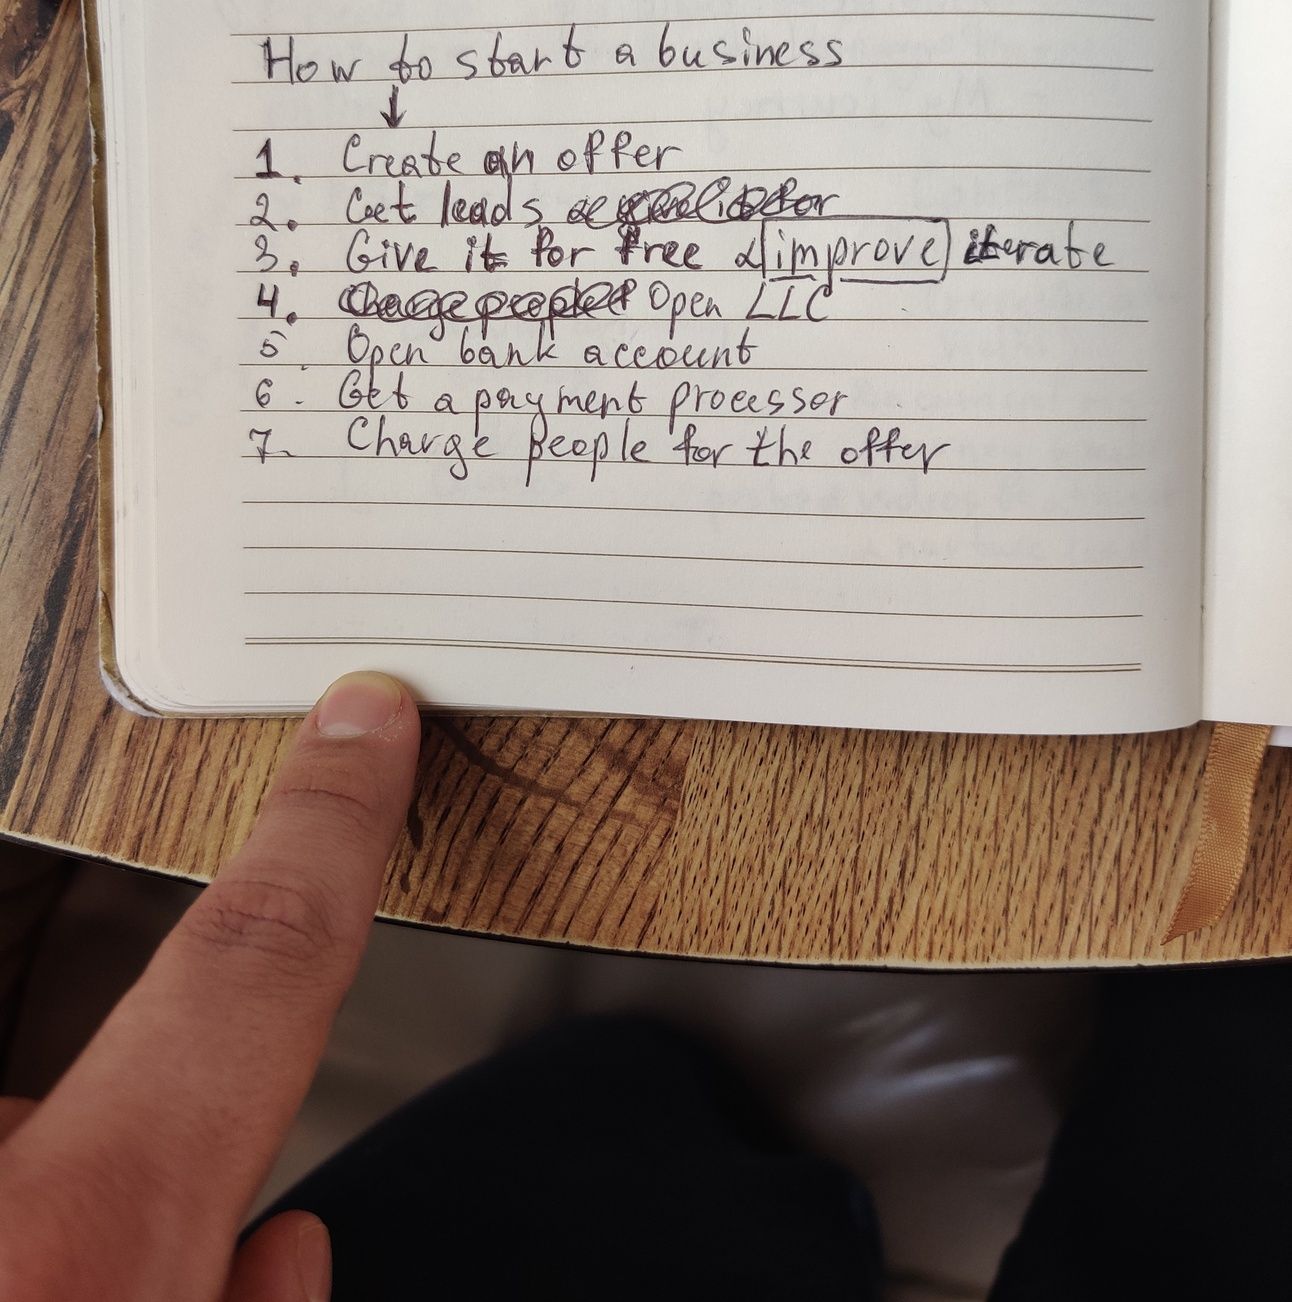 How to start a business
↓
1. Create an offer
2. Get leads
3. Give it for free & improve iterate
4. Open LLC
5. Open bank account
6. Get a payment processor
7. Charge people for the offer